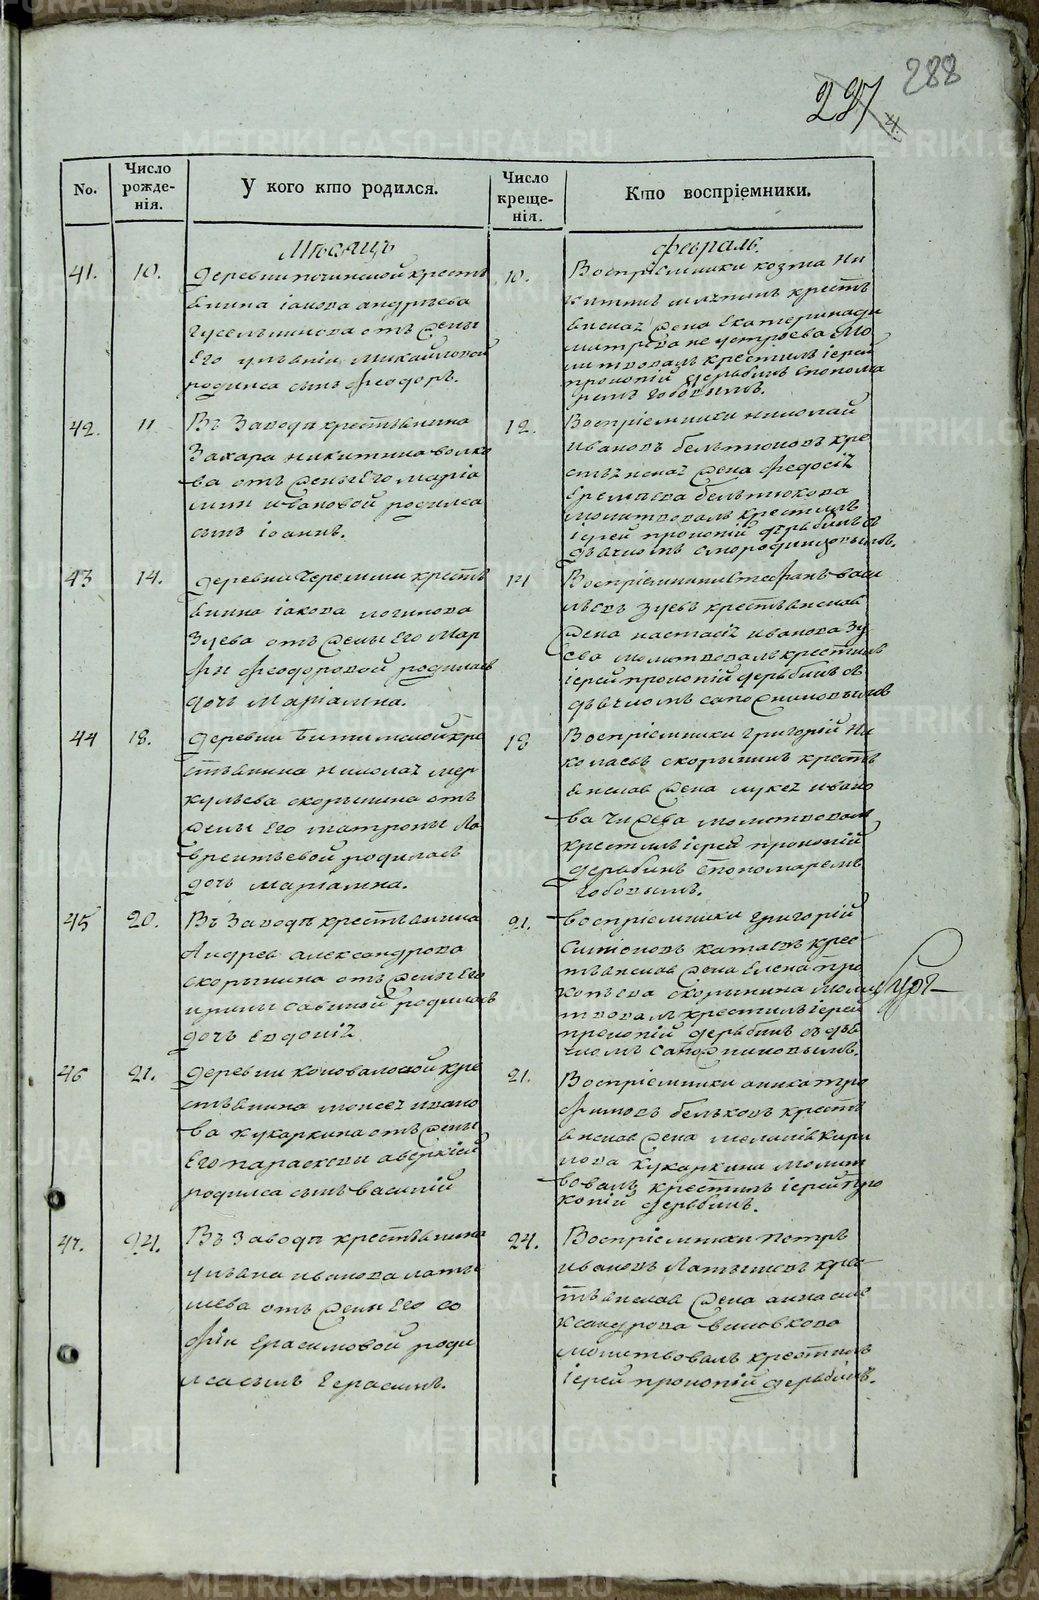 288
227
No.
Число рожде-нія.
У кого кто родился.
Число креще-нія.
Кто воспріемники.
Мѣсяцъ
февраль.
41.
10.
деревни починской кресть
янина іакова андрѣева
от жены
его ульяніи михайловой
родился сынъ феодоръ.
10.
Воспріемники козма ни
китинъ кресть
янская жена екатерина ди
митріева мо
литвовалъ крестилъ іерей
прокопій дерябинъ споном
ремъ бобовымъ.
42.
11
Въ Заводѣ крестьянина
Захара никитина волко
ва отъ жены его маріа
мии ивановой родился
сынъ іоаннъ.
12.
Воспріемники николай
ивановъ бельтюковъ кре
стьянская жена федосія
еремѣева бельтюкова
молитвовалъ крестилъ
іерей прокопій дерябинъ с
дьячкомъ смородинцовымъ.
43
14.
деревни черемши кресть
янина іакова логинова
Зуева отъ жены его мар
фы феодоровой родилась
дочь Маріамна.
14
Воспріемники стефанъ васи
льевъ зуевъ крестьянская
жена настасія иванова зу
ева молитвовалъ крестилъ
іерей прокопій дерябинъ съ
дьячкомъ сапожниковымъ
44
18.
деревни битимской кре
стьянина николая мер
кульева скорынина отъ
жены его матроны ла
врентьевой родилась
дочь маріамна.
18
Воспріемники григорій ни
колаевъ скорынинъ кресть
янская жена лукея ивано
ва молитвовалъ
крестилъ іерей прокопій
дерябинъ спономаремъ
бобовымъ.
45
20.
Въ Заводѣ крестьянина
Андрея александрова
скорынина отъ жены его
ирины савиной родилась
дочь евдокія
21.
воспріемники григорій
симіоновъ катаевъ крес
тьянская жена елена про
копьева скорынина моли
твовалъ крестилъ іерей
прокопій дерябинъ съ дья
чкомъ сапожниковымъ.
46
21.
деревни коновалоской кре
стьянина моисея ивано
ва кукаркина отъ жены
его параскевы аверкіей
родился сынъ василій
21.
Воспріемники аника тро
фимовъ бельковъ кресть
янская жена меланія кири
лова кукаркина молит
вовалъ крестилъ іерей про
копій дерябинъ.
47.
24.
Въ Заводѣ крестьянина
ульяна иванова латы
шева отъ жены его со
фіи ерасимовой роди
лся сынъ герасимъ.
24.
Воспріемники петръ
ивановъ латышевъ крес
тьянская жена анна але
ксандрова
молитвовалъ крестилъ
іерей прокопій дерябинъ.